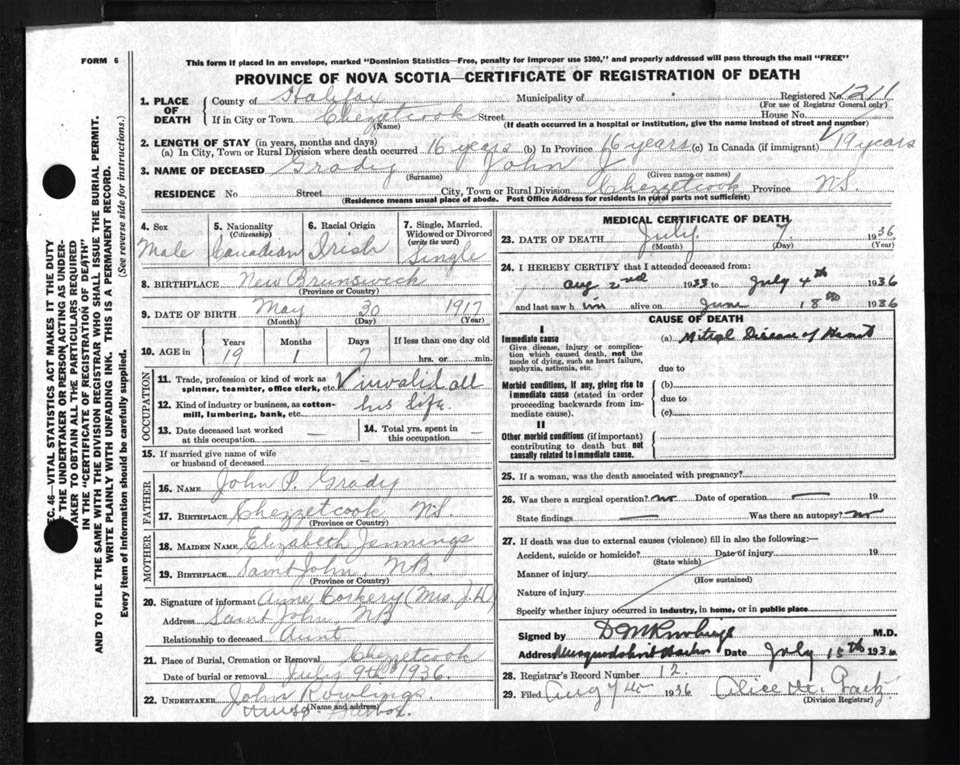 FORM 6
This form if placed in an envelope, marked "Dominion Statistics—Free, penalty for improper use $300," and properly addressed will pass through the mail "FREE"
PROVINCE OF NOVA SCOTIA—CERTIFICATE OF REGISTRATION OF DEATH
1. PLACE OF DEATH
County of Halifax Municipality of Registered No. 1211
(For use of Registrar General only)
If in City or Town Chezzetcook Street House No.
(Name) (If death occurred in a hospital or institution, give the name instead of street and number)
2. LENGTH OF STAY (in years, months and days)
(a) In City, Town or Rural Division where death occurred 16 years (b) In Province 16 years (c) In Canada (if immigrant) 19 years
3. NAME OF DECEASED Grady John
(Surname) (Given name or names)
RESIDENCE No Street City, Town or Rural Division Chezzetcook Province NS.
(Residence means usual place of abode. Post Office Address for residents in rural parts not sufficient)
4. Sex 5. Nationality (Citizenship) 6. Racial Origin 7. Single, Married, Widowed or Divorced (write the word)
Male Canadian Irish Single
8. BIRTHPLACE New Brunswick
(Province or Country)
9. DATE OF BIRTH May 30 1917
(Month) (Day) (Year)
Years Months Days If less than one day old
10. AGE in 19 1 7 hrs. or min.
OCCUPATION
11. Trade, profession or kind of work as spinner, teamster, office clerk, etc. invalid all
12. Kind of industry or business, as cotton-mill, lumbering, bank, etc. his life.
13. Date deceased last worked at this occupation —
14. Total yrs. spent in this occupation —
15. If married give name of wife or husband of deceased
FATHER
16. NAME John P. Grady
17. BIRTHPLACE Chezzetcook NS.
(Province or Country)
MOTHER
18. MAIDEN NAME Elizabeth Jennings
19. BIRTHPLACE Saint John, NB
(Province or Country)
20. Signature of informant Anne Corkery (Mrs. J.W)
Address Saint John, NB
Relationship to deceased Aunt
21. Place of Burial, Cremation or Removal Chezzetcook
Date of Burial or removal July 9th 1936.
22. UNDERTAKER John Rowlings
(Name and address)
MEDICAL CERTIFICATE OF DEATH
23. DATE OF DEATH July 7 1936
(Month) (Day) (Year)
24. I HEREBY CERTIFY that I attended deceased from:
Aug 2nd 1933 to July 4th 1936
and last saw him alive on June 18th 1936
CAUSE OF DEATH
I
Immediate cause (a) Mitral Disease of Heart
Give disease, injury or complication which caused death, not the mode of dying, such as heart failure, asphyxia, asthenia, etc.
due to
Morbid conditions, if any, giving rise to immediate cause (stated in order proceeding backwards from immediate cause).
(b)
due to
(c)
II
Other morbid conditions (if important) contributing to death but not causally related to immediate cause.
25. If a woman, was the death associated with pregnancy?
26. Was there a surgical operation? no Date of operation — 19
State findings — Was there an autopsy? no
27. If death was due to external causes (violence) fill in also the following:—
Accident, suicide or homicide? Date of injury 19
(State which)
Manner of injury
(How sustained)
Nature of injury
Specify whether injury occurred in industry, in home, or in public place
Signed by D M Rowlings M.D.
Address Musquodoboit Harbor Date July 15th 1936
28. Registrar's Record Number 12
29. Filed Aug 7th 1936 Alice M.
(Division Registrar)
SEC. 46—VITAL STATISTICS ACT MAKES IT THE DUTY
OF THE UNDERTAKER OR PERSON ACTING AS UNDERTAKER TO OBTAIN ALL THE PARTICULARS REQUIRED
IN THE "CERTIFICATE OF REGISTRATION OF DEATH"
AND TO FILE THE SAME WITH THE DIVISION REGISTRAR WHO SHALL ISSUE THE BURIAL PERMIT.
WRITE PLAINLY WITH UNFADING INK. THIS IS A PERMANENT RECORD.
Every item of information should be carefully supplied. (See reverse side for instructions.)